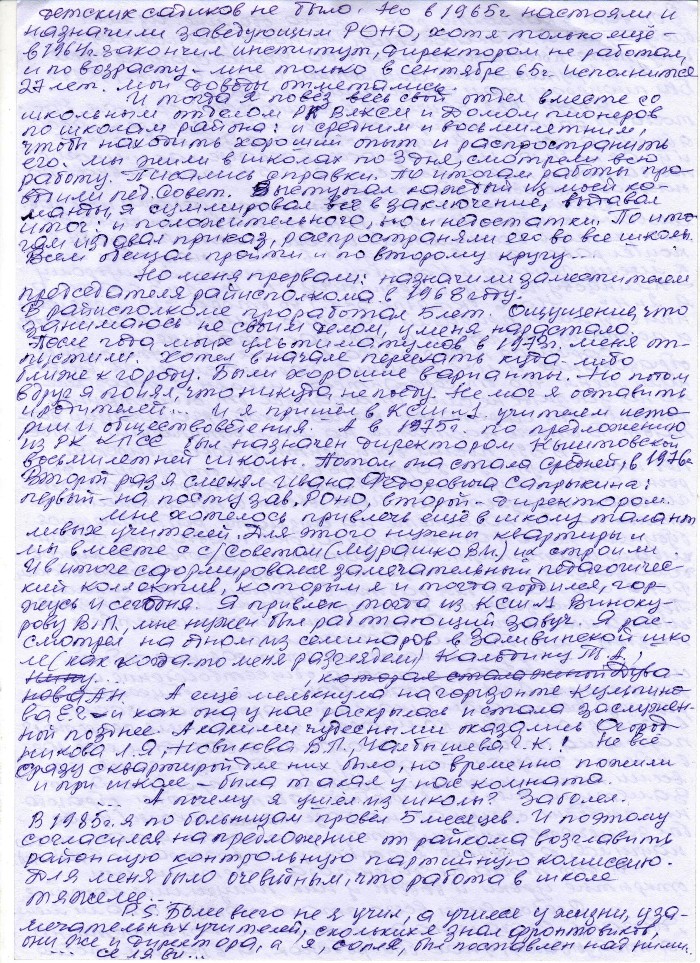 детских садиков не было. Но в 1965г настояли и
назначили заведующим РОНО, хотя только ещё -
в 1964г. закончил институт, директором не работал,
и по возрасту - мне только в сентябре 65г. исполнится
27 лет. Мои доводы отметались.
И тогда я повёз весь свой отдел вместе со
школьным отделом РК ВЛКСМ и Домом пионеров
по школам района: и средним и восьмилетним,
чтобы находить хороший опыт и распространить
его. Мы жили в школах по 3 дня, смотрели всю
работу. Писались справки. По итогам работы про-
водили пед. Совет. Выступал каждый из моей ко-
манды, я суммировал всё в заключение, выдавал
итог: и положительного, но и недостатки. По ито-
гам издавал приказ, распространяли его во все школы.
Всем обещал пройти и по второму кругу...
Но меня прервали: назначили заместителем
председателя райисполкома в 1968 году.
В райисполкоме проработал 5 лет. Ощущение, что
занимаюсь не своим делом, у меня нарастало.
После года моих ультиматумов в 1973г. меня от-
пустили. Хотел вначале переехать куда-либо
ближе к городу. Были хорошие варианты. Но потом
вдруг я понял, что никуда не поеду. Не мог я оставить
и родителей... И я пришёл в КСШ №1 учителем исто-
рии и обществоведения. А в 1975г. по предложению
из РК КПСС был назначен директором Кыштовской
восьмилетней школы. Потом она стала средней, в 1976г.
Второй раз я сменял Ивана Фёдоровича Сапрыкина:
первый - на посту зав. РОНО, второй - директором.
Мне хотелось привлечь ещё в школу талант-
ливых учителей. Для этого нужны квартиры и
мы вместе с с/Советом (Мурашко В.И.) их строили.
И в итоге сформировался замечательный педагогичес-
кий коллектив, которым я и тогда гордился, гор-
жусь и сегодня. Я привлёк тогда из КСШ №1 Виноку-
рову В.П., мне нужен был работающий завуч. Я рас-
смотрел на одном из семинаров в Заливинской шко-
ле (как когда-то меня разглядели) Кальбину Т.А.;
которая стала женой Дува-
нова А.Н. А ещё мелькнула на горизонте Культино-
ва Е.Г. и как она у нас раскрылась и стала заслужен-
ной позднее. А какими чудесными оказались Огород-
никова Л.Я., Новикова В.П., Чалбышева Г.К.! Не всё
сразу с квартирой для них было, но временно пожили
и при школе - была такая у нас комната.
... А почему я ушёл из школы? Заболел.
В 1985г. я по больницам провёл 5 месяцев. И поэтому
согласился на предложение от райкома возглавить
районную контрольную партийную комиссию.
Для меня было очевидным, что работа в школе
тяжелее...
P.S. Более всего не я учил, а учился у жизни, у за-
мечательных учителей, скольких я знал фронтовиков,
они же и директора, а я, сопля, был поставлен над ними...
... се ля ви...